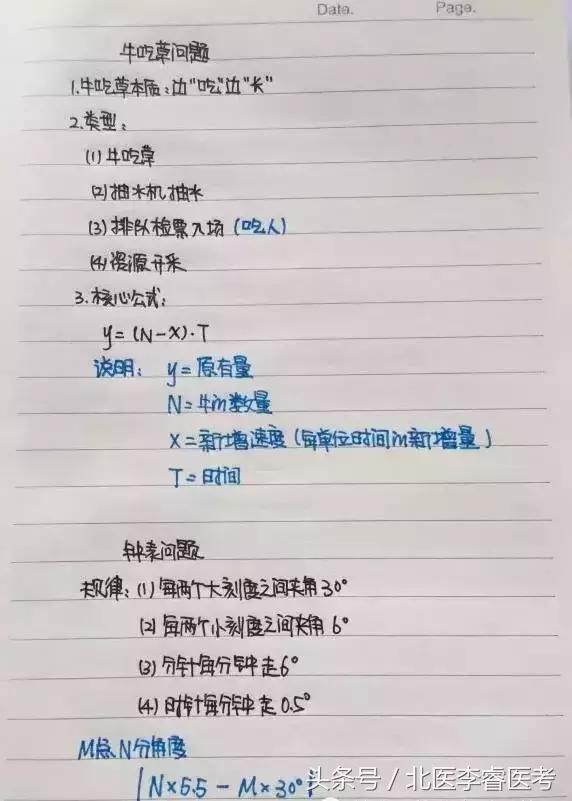 Date.    Page.
牛吃草问题
1.牛吃草本质:边"吃"边"长"
2.类型:
(1)牛吃草
(2)抽水机抽水
(3)排队检票入场(吃人)
(4)资源开采
3.核心公式:
y=(N-X)·T
说明: y=原有量
N=牛的数量
X=新增速度(每单位时间的新增量)
T=时间
钟表问题
规律:(1)每两个大刻度之间夹角30°
(2)每两个小刻度之间夹角6°
(3)分针每分钟走6°
(4)时针每分钟走0.5°
M点N分角度
|N×5.5-M×30°|
头条号/北医李睿医考